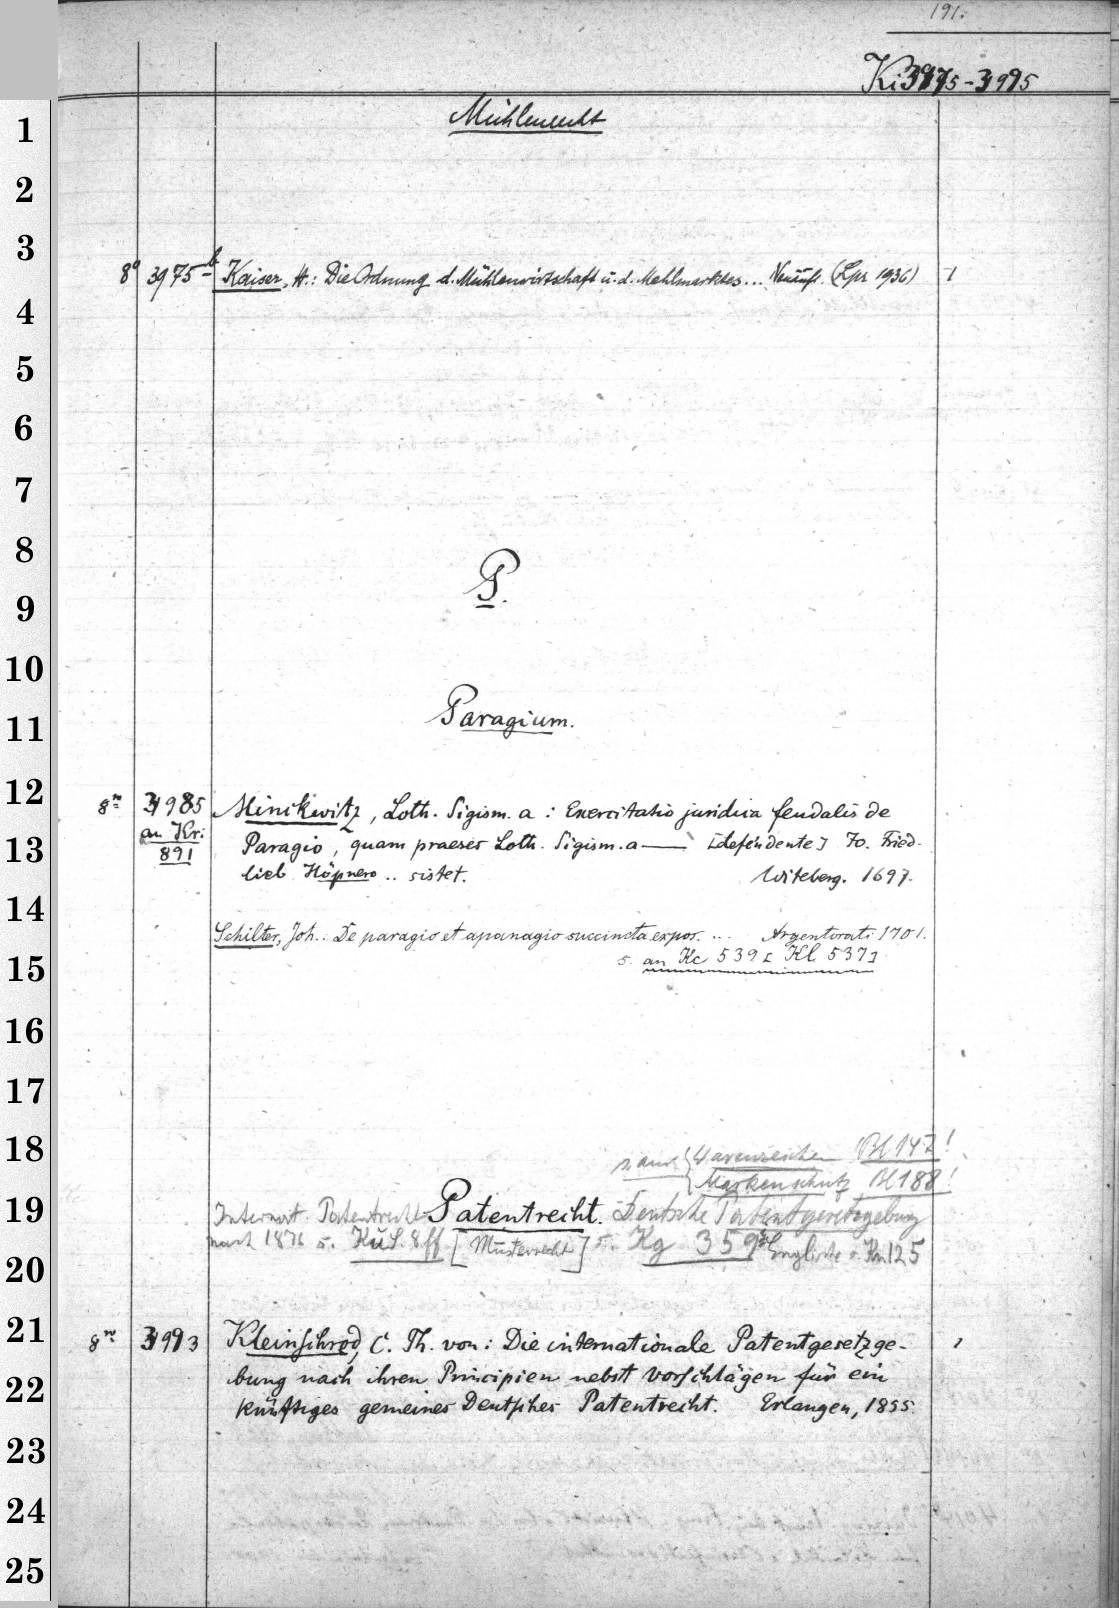 191.
Ki 3975-3995
Mühlenrecht
8° 3975-b Kaiser, H.: Die Ordnung d. Mühlenwirtschaft u. d. Mehlmarktes... Neuaufl. (Lpz 1936) 1
P.
Paragium.
8° 3985 Minckwitz, Loth. Sigism. a: Exercitatio juridica feudalis de
an Kr: Paragio, quam praeses Loth. Sigism. a — [defendente] Jo. Fried-
891 lieb Höpnero .. sistet. Witeberg. 1697.
Schilter, Joh.: De paragio et apanagio succincta expos. ... Argentorati 1701.
s. an Kc 539 [Kl 537]
s. auch Warenzeichen Bl 147!
Markenschutz Bl 188!
Internat. Patentrecht Patentrecht. Deutsche Patentgesetzgebung
nach 1876 s. Kü S. 8ff [Musterrecht] s. Kg 359 Englische s. Kn 125
8° 3993 Kleinschrod, C. Th. von: Die internationale Patentgesetzge- 1
bung nach ihren Principien nebst Vorschlägen für ein
künftiges gemeines Deutsches Patentrecht. Erlangen, 1855.
1
2
3
4
5
6
7
8
9
10
11
12
13
14
15
16
17
18
19
20
21
22
23
24
25